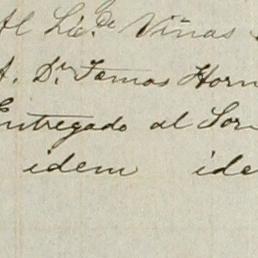 Al Lic. de Viñas
A. Dr. Tomas Horn
Entregado al Sor
idem ide